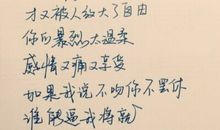 才又被人放大了自由
你的暴烈太温柔
感情又痛又享受
如果我说不吻你不罢休
谁能逼我将就